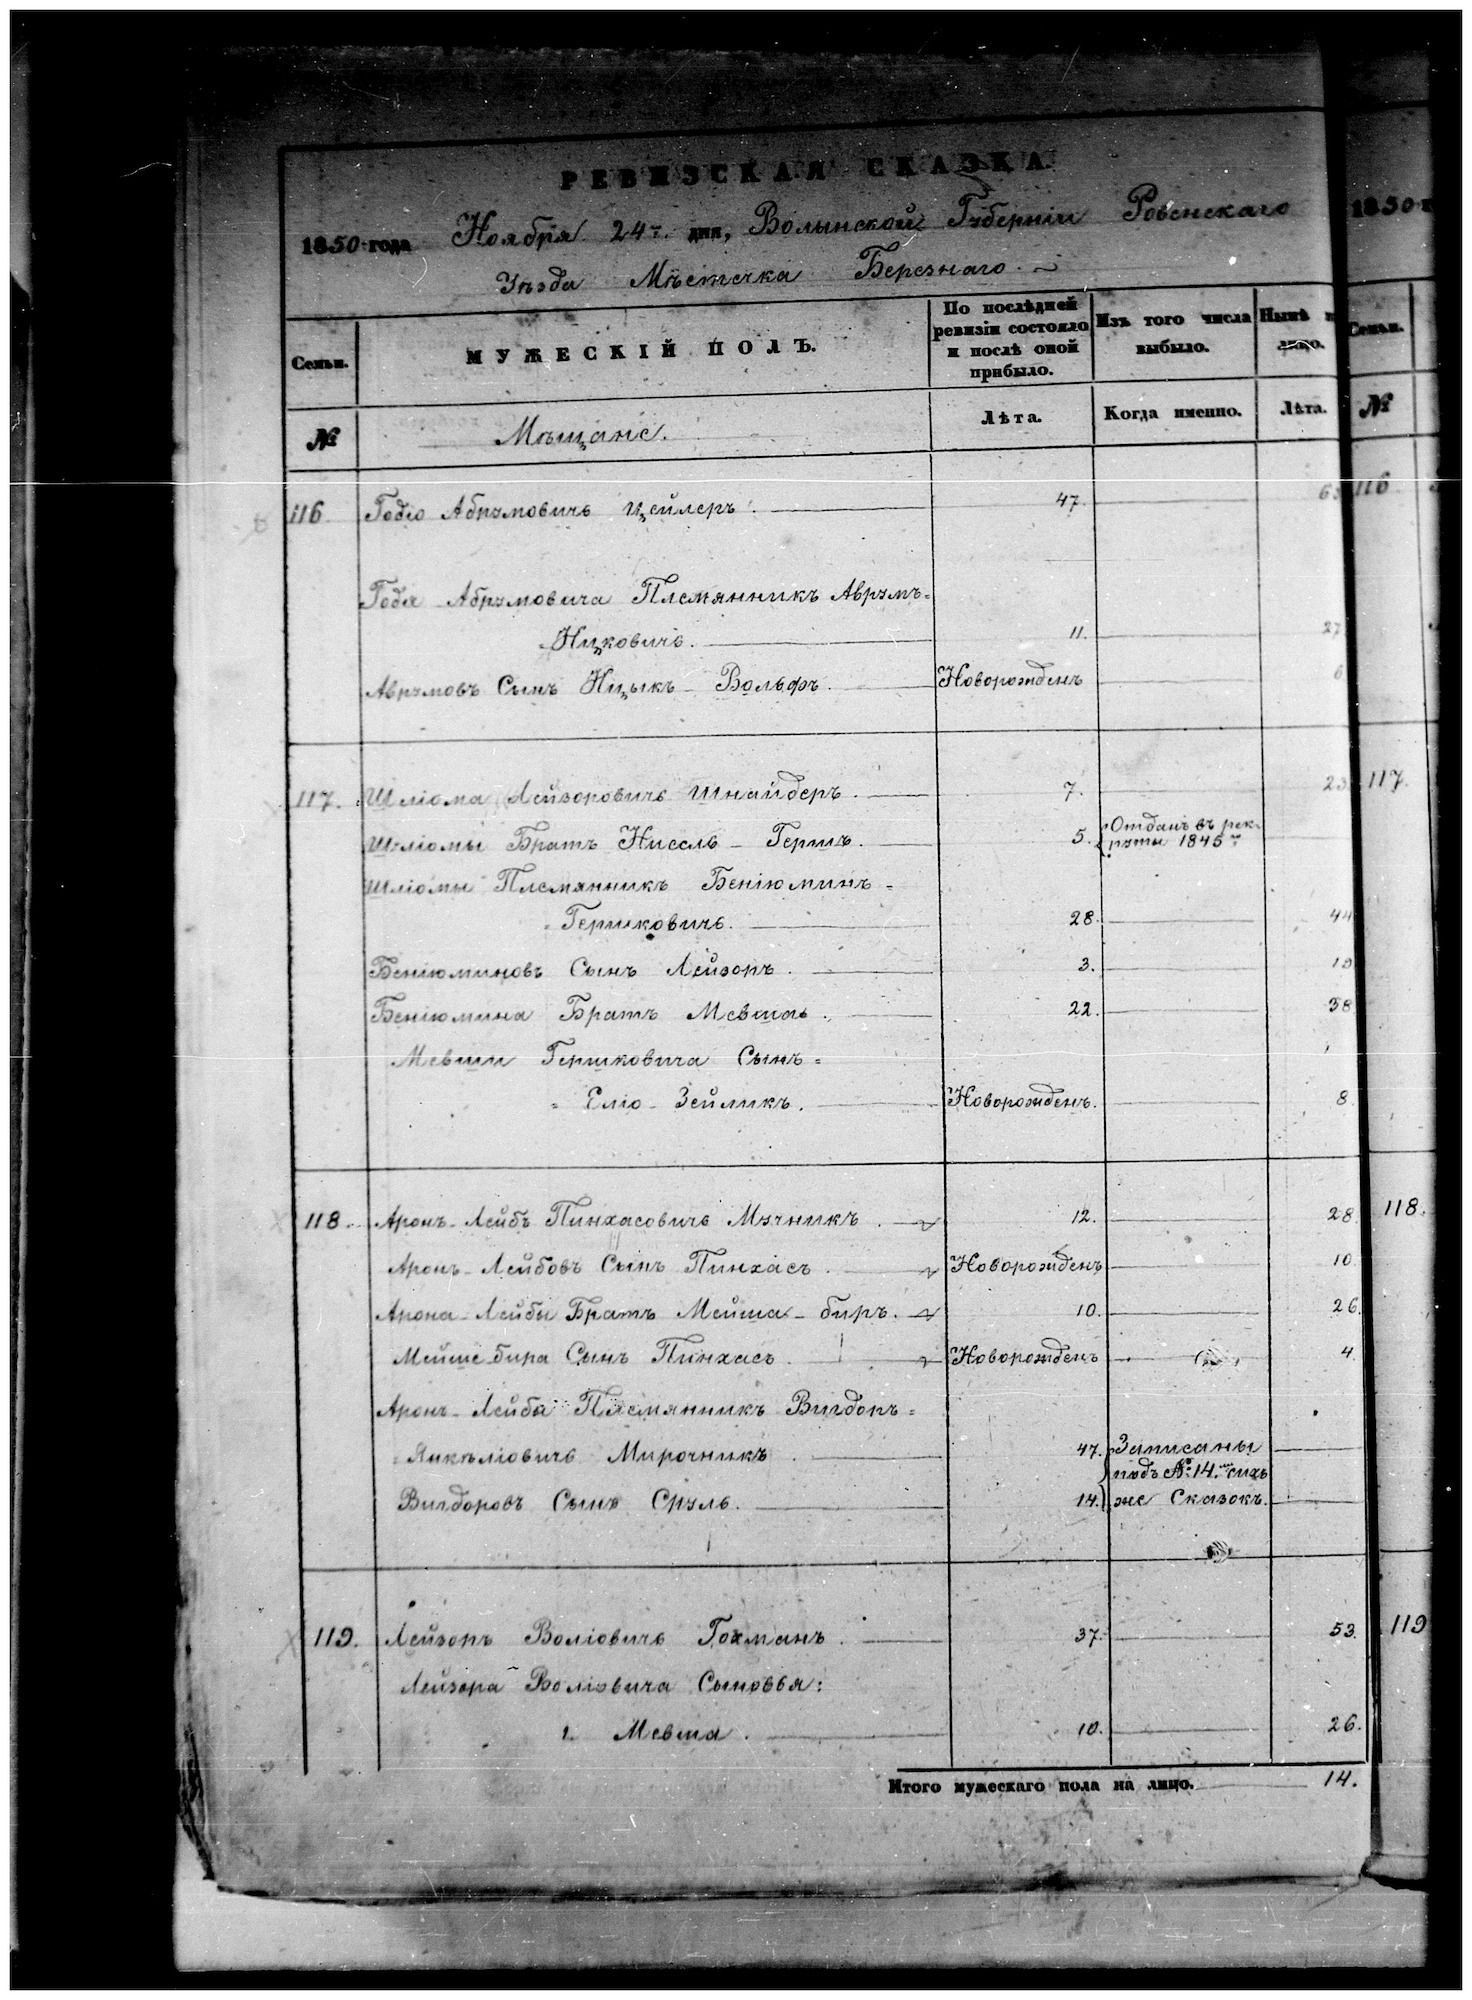 РЕВИЗСКАЯ СКАЗКА
1850 года Ноября 24го дня, Волынской Губерніи Ровенскаго
Уѣзда Мѣстечка Березнаго.
Семьи.
МУЖЕСКІЙ ПОЛЪ.
По послѣдней ревизіи состояло и послѣ оной прибыло.
Изъ того числа выбыло.
Нынѣ на лицо.
№
Мѣщане.
Лѣта.
Когда именно.
Лѣта.
116 Годіо Абрумовичъ Цейлеръ. 47.
Годя Абрумовича Племянникъ Аврумъ=
=Ицковичъ. 11. 27
Аврумовъ Сынъ Ицыкъ-Вольфъ. Новорожденъ 6
117. Шліома Лейзоровичъ Шнайдеръ. 7. 23.
Шліомы Братъ Нисель-Гершъ. 5. Отданъ въ рек-
руты 1845го
Шліомы Племянникъ Беніюминъ=
=Гершковичъ. 28. 44
Беніюминовъ Сынъ Лейзоръ. 3. 19
Беніюмина Братъ Мевша. 22. 38
Мевши Гершковича Сынъ=
=Еліо-Зейликъ. Новорожденъ. 8.
118. Аронъ-Лейбъ Пинхасовичъ Мучникъ. 12. 28.
Аронъ-Лейбовъ Сынъ Пинхасъ. Новорожденъ 10.
Арона-Лейбы Братъ Мейша-биръ. 10. 26.
Мейше-бира Сынъ Пинхасъ. Новорожденъ 4.
Аронъ-Лейба Племянникъ Вигдоръ=
=Янкеліовичъ Мирочникъ. 47. Записаны
подъ №14. сихъ
Вигдоровъ Сынъ Сруль. 14. же Сказокъ.
119. Лейзоръ Воліовичъ Гохманъ. 37. 53.
Лейзора Воліовича Сыновья:
1. Мевша. 10. 26.
Итого мужескаго пола на лицо. 14.
1850
Семьи.
№
116
117.
118.
119